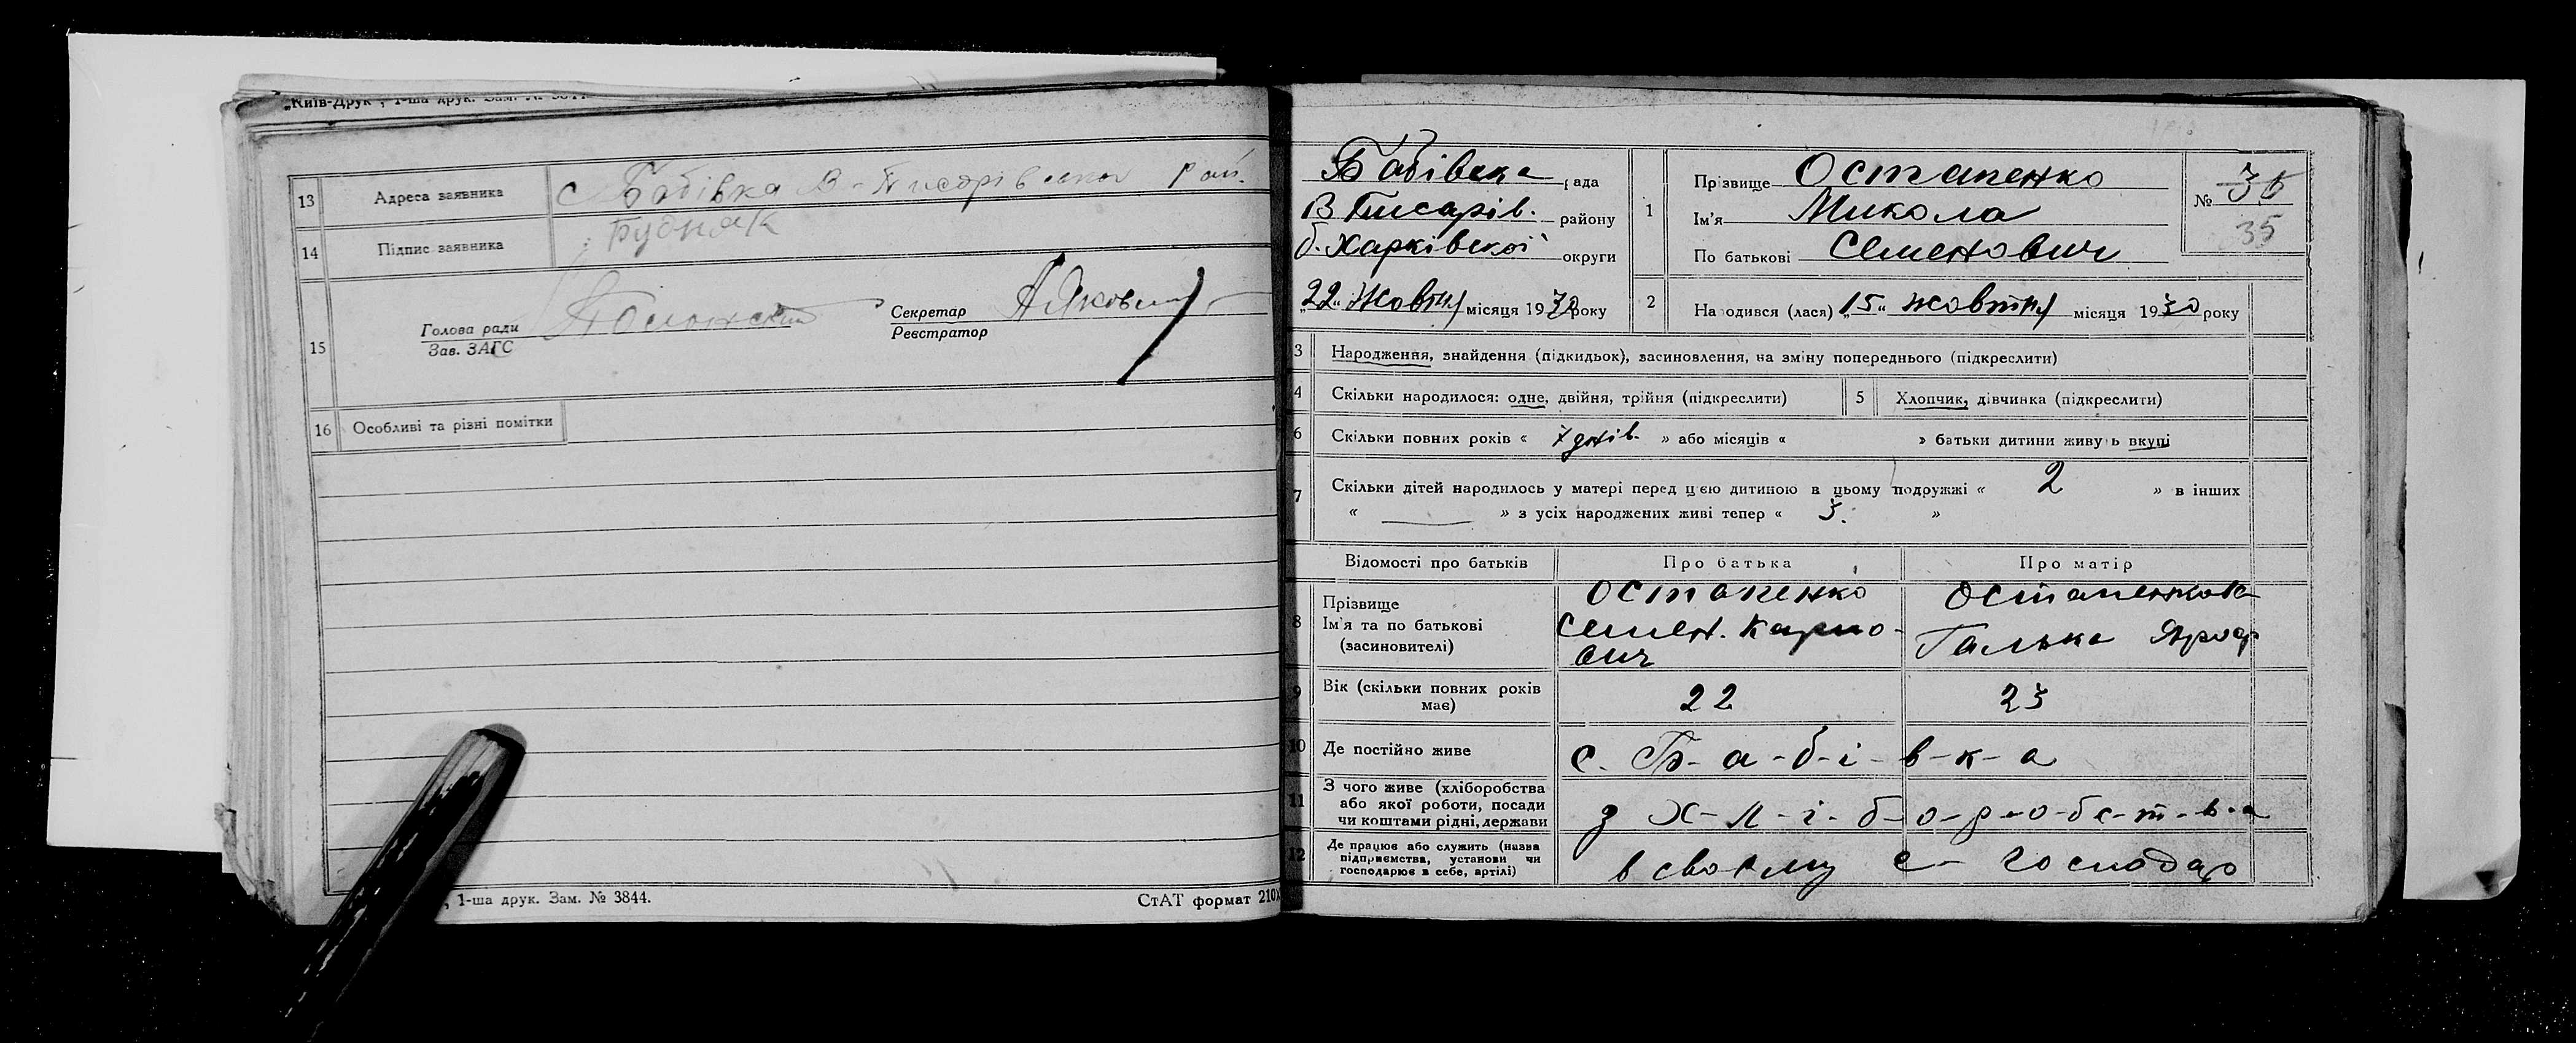 „Київ-Друк", 1-ша друк. Зам. №
13 Адреса заявника с Бабівка В-Писарівська рай.
14 Підпис заявника Рудняк
15 Голова ради
Зав. ЗАГС
Секретар
Реєстратор
16 Особливі та різні помітки
, 1-ша друк. Зам. № 3844.
СтАТ формат 210
Бабівська рада
В Писарів. району
б. Харківської округи
„22" Жовтня місяця 1930 року
1 Прізвище Остапенко
Ім'я Микола
По батькові Семенович
№ 36
35
2 Народився (лася) „15" жовтня місяця 1930 року
3 Народження, знайдення (підкидьок), засиновлення, на зміну попереднього (підкреслити)
4 Скільки народилося: одне, двійня, трійня (підкреслити) 5 Хлопчик, дівчинка (підкреслити)
6 Скільки повних років « 7 днів. » або місяців « » батьки дитини живуть вкупі
7 Скільки дітей народилось у матері перед цією дитиною в цьому подружжі « 2 » в інших
« — » з усіх народжених живі тепер « 3. »
Відомості про батьків Про батька Про матір
8 Прізвище Остапенко Остапенкова
Ім'я та по батькові Семен. Карпо- Галька
(засновителі) вич
9 Вік (скільки повних років має) 22 23
10 Де постійно живе с. Б-а-б-і-в-к-а
11 З чого живе (хліборобства
або якої роботи, посади
чи коштами рідні, держави з х-л-і-б-о-р-о-бс-т-в-а
12 Де працює або служить (назва
підприємства, установи чи
господарює в себе, артілі) в своєму с- господар